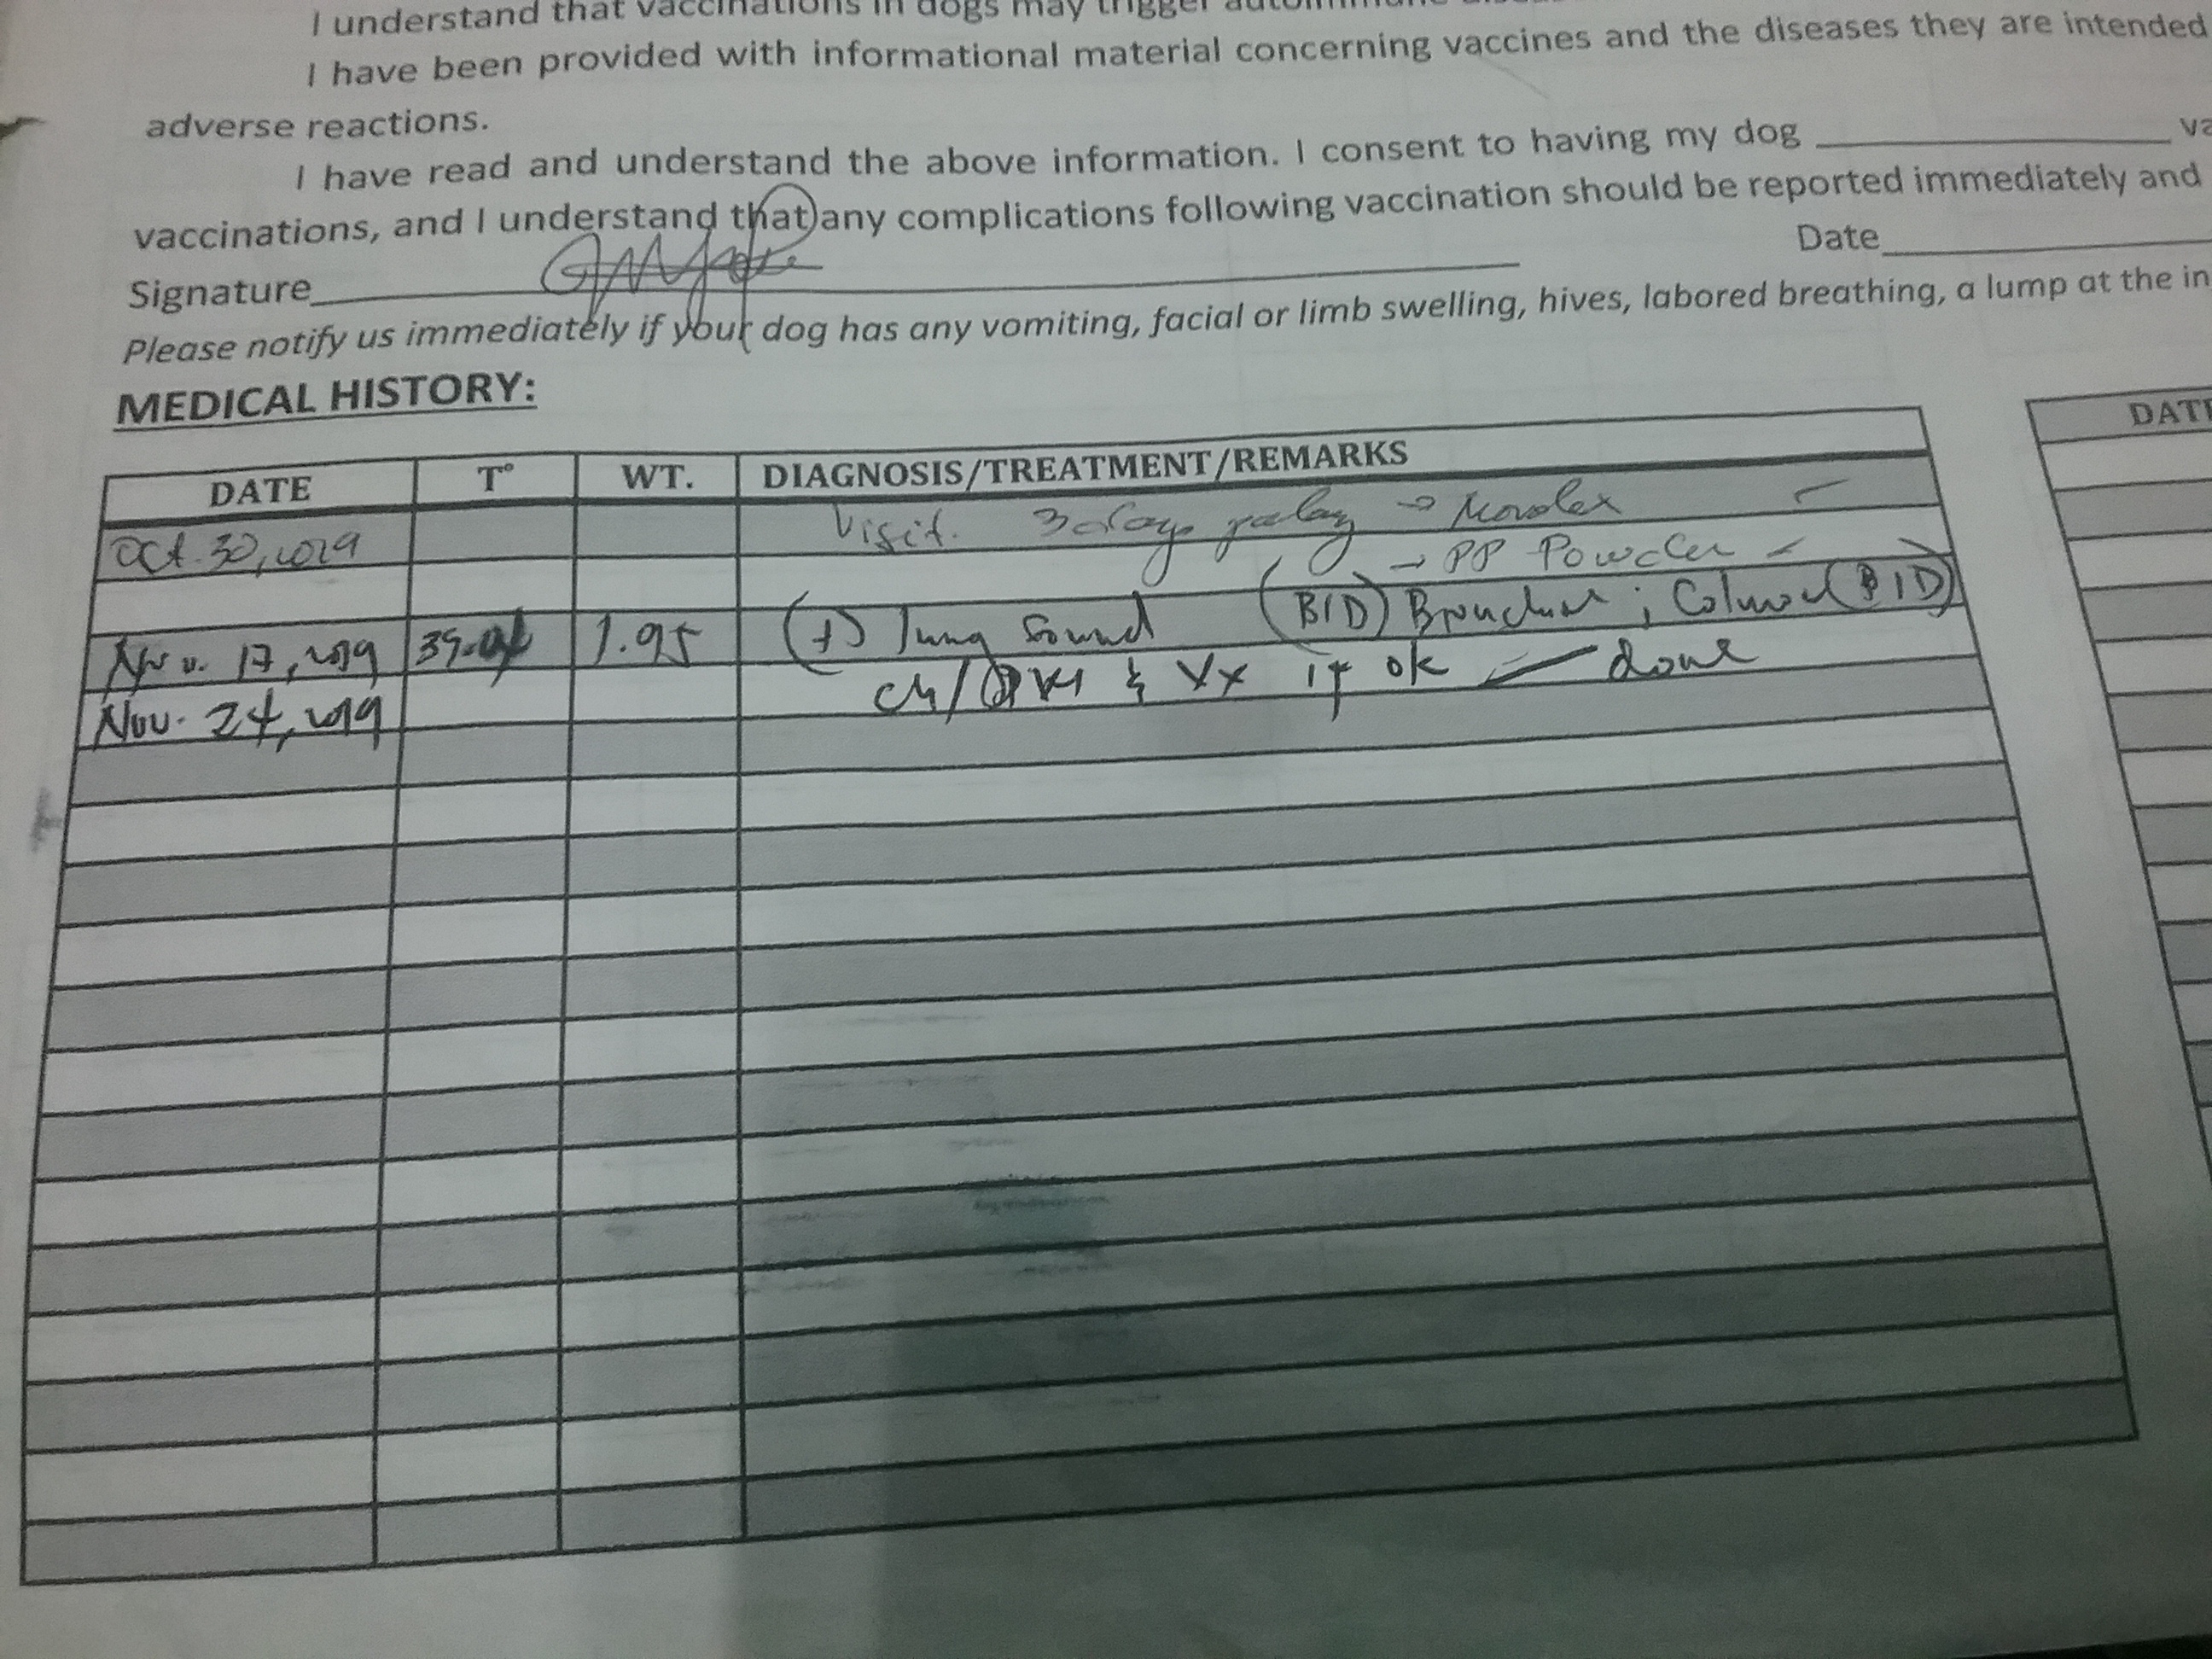 I understand that vaccinations in dogs may trigger
I have been provided with informational material concerning vaccines and the diseases they are intended
adverse reactions.
I have read and understand the above information. I consent to having my dog ____________ va
vaccinations, and I understand that any complications following vaccination should be reported immediately and
Signature____________ Date____________
Please notify us immediately if your dog has any vomiting, facial or limb swelling, hives, labored breathing, a lump at the in
MEDICAL HISTORY:
DATE T° WT. DIAGNOSIS/TREATMENT/REMARKS DATE
Oct. 30, 2019 Visit. 3 days
→ PP Powder
Nov. 17, 2019 1.95 (+) lung sound (BID) ; (BID)
Nov. 24, 2019 & Vx if ok done